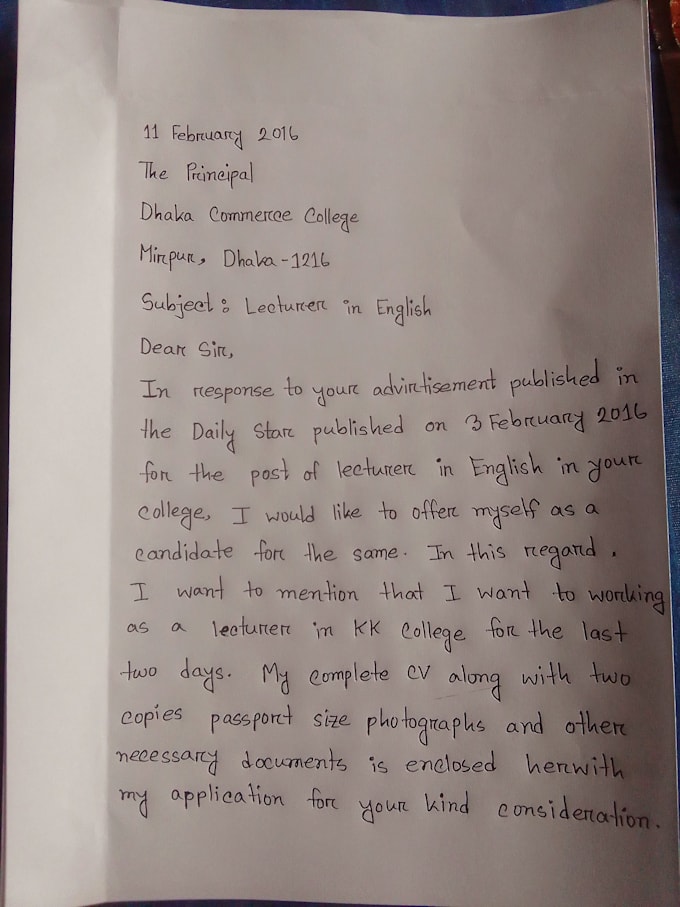 11 February 2016
The Principal
Dhaka Commerce College
Mirpur, Dhaka-1216
Subject: Lecturer in English
Dear Sir,
In response to your advirtisement published in
the Daily Star published on 3 February 2016
for the post of lecturer in English in your
college, I would like to offer myself as a
candidate for the same. In this regard.
I want to mention that I want to working
as a lecturer in KK College for the last
two days. My complete CV along with two
copies passport size photographs and other
necessary documents is enclosed herwith
my application for your kind consideration.